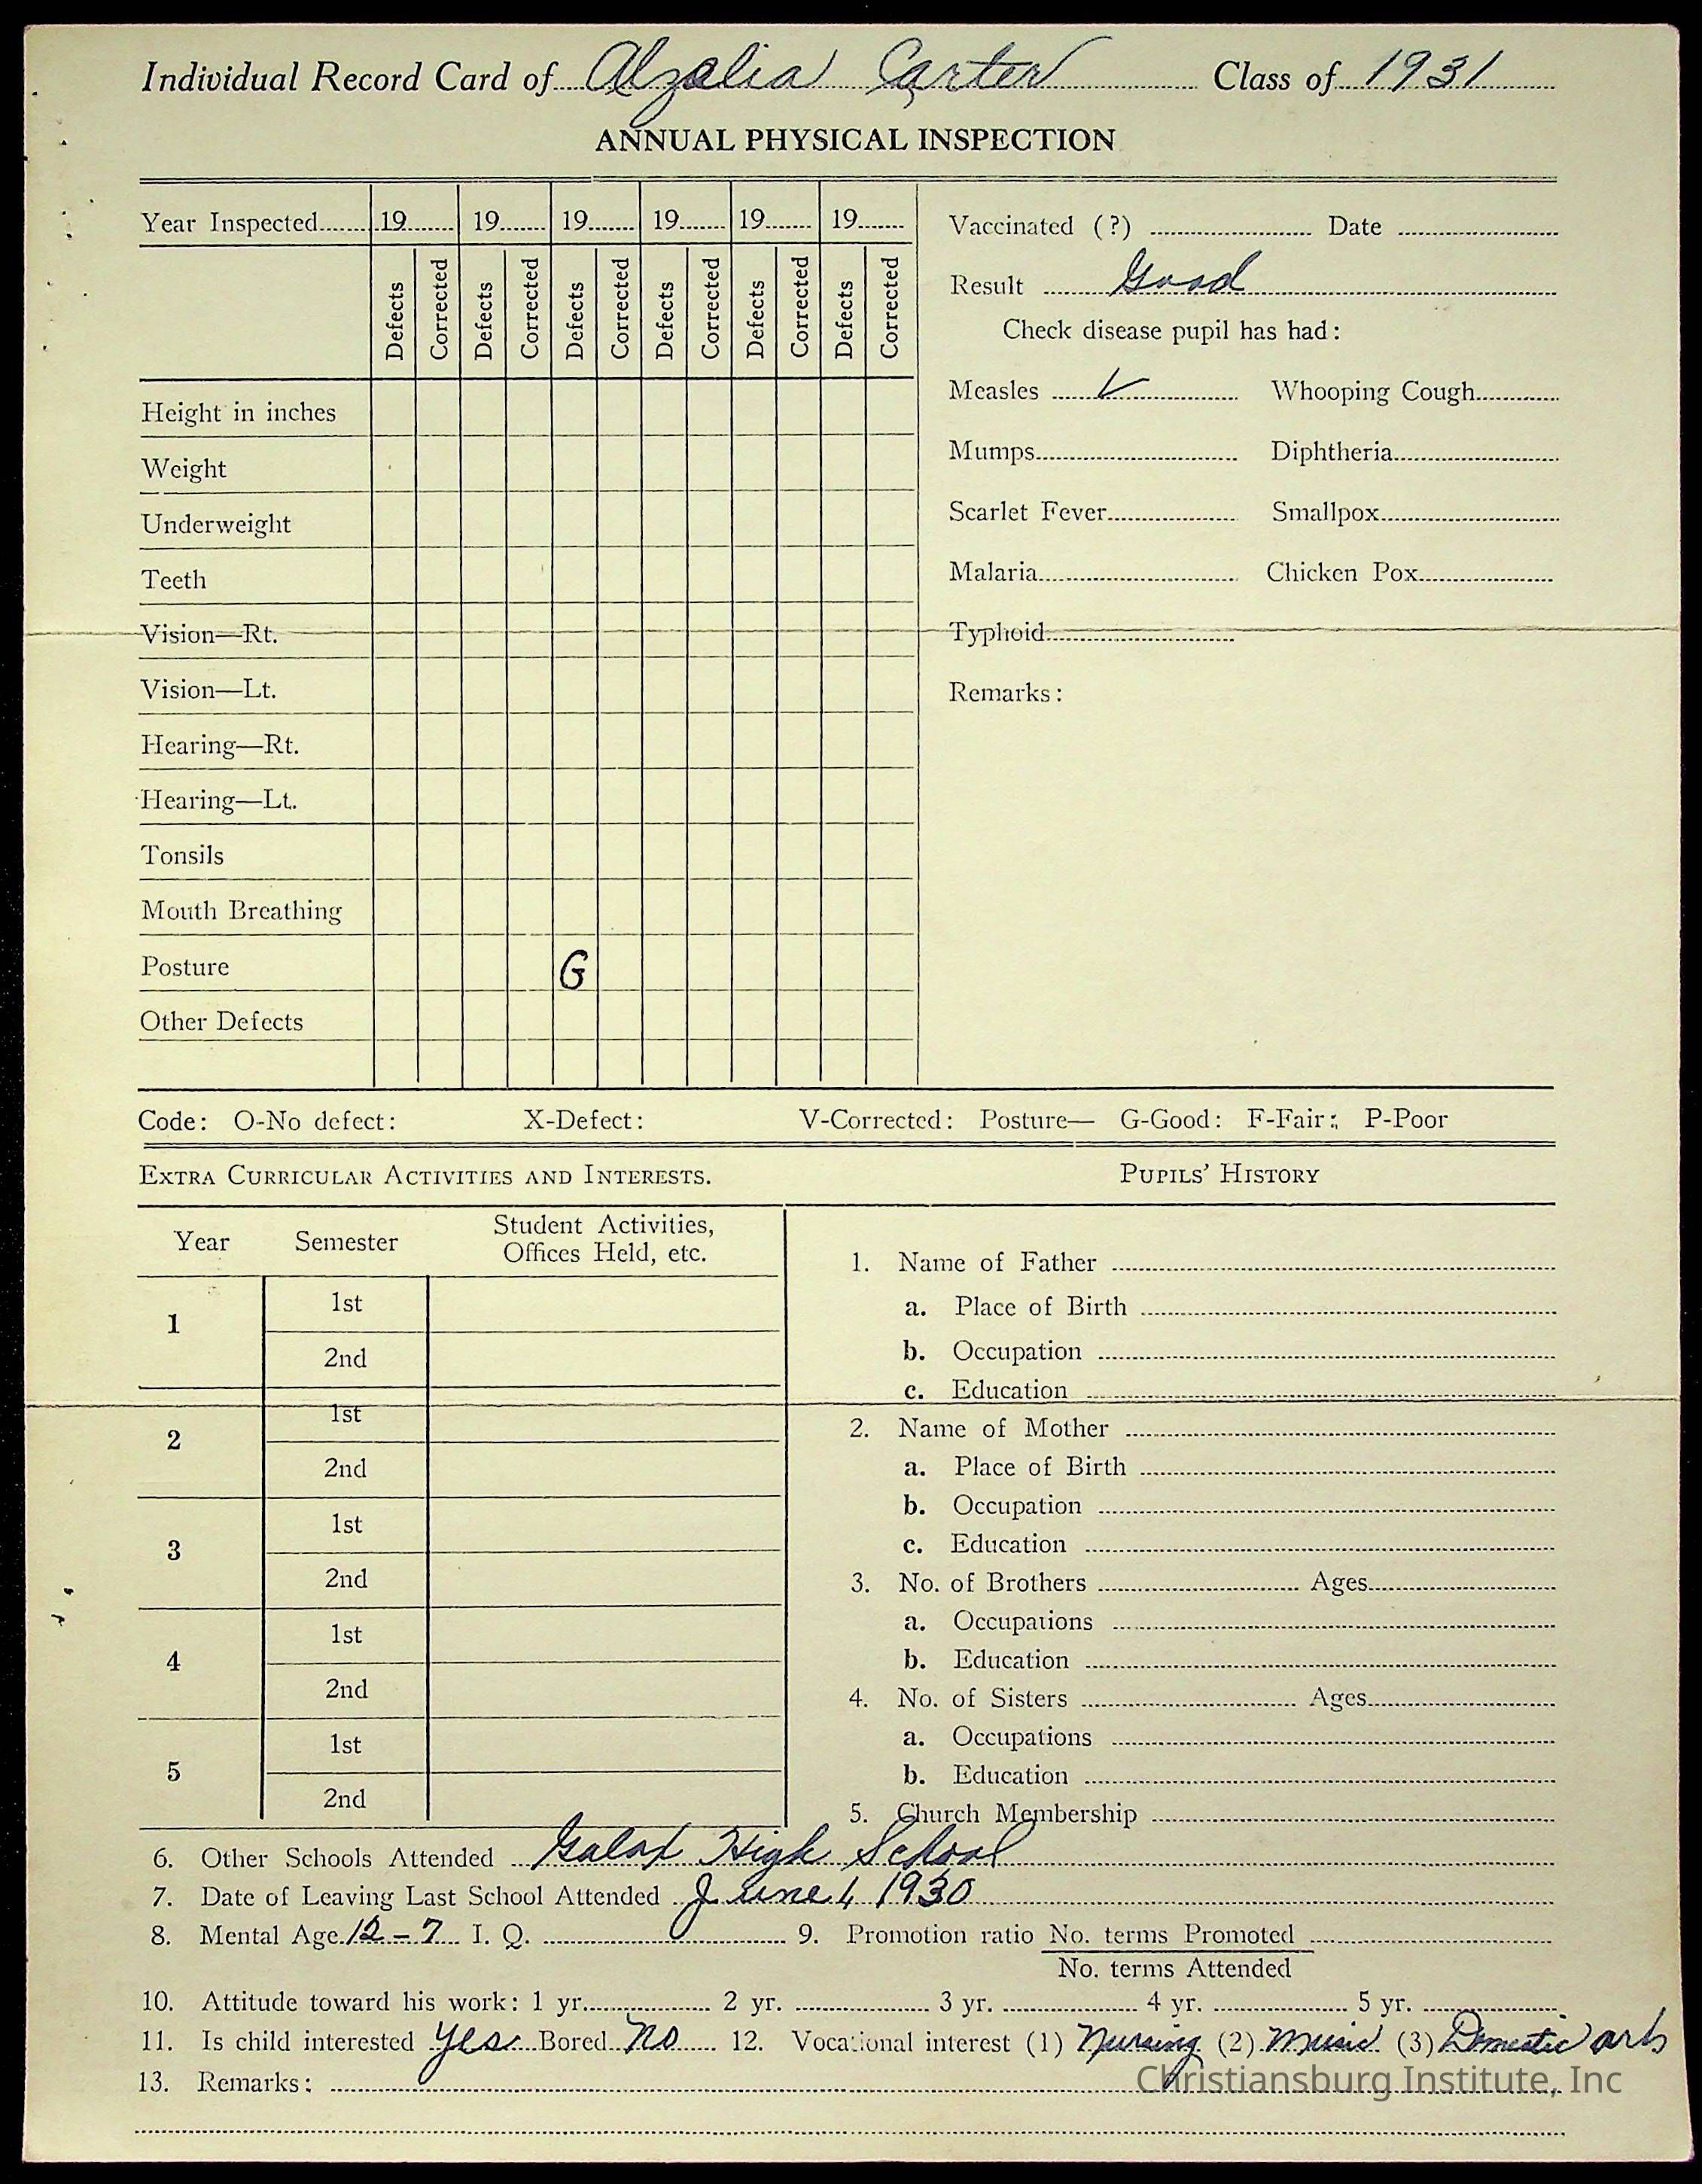 Individual Record Card of Alzalia Carter Class of 1931
ANNUAL PHYSICAL INSPECTION
Year Inspected 19 19 19 19 19 19
Defects Corrected Defects Corrected Defects Corrected Defects Corrected Defects Corrected Defects Corrected
Height in inches
Weight
Underweight
Teeth
Vision—Rt.
Vision—Lt.
Hearing—Rt.
Hearing—Lt.
Tonsils
Mouth Breathing
Posture G
Other Defects
Vaccinated (?) Date
Result Good
Check disease pupil has had:
Measles V Whooping Cough
Mumps Diphtheria
Scarlet Fever Smallpox
Malaria Chicken Pox
Typhoid
Remarks:
Code: O-No defect: X-Defect: V-Corrected: Posture— G-Good: F-Fair: P-Poor
EXTRA CURRICULAR ACTIVITIES AND INTERESTS.
Year Semester Student Activities,
Offices Held, etc.
1 1st
2nd
2 1st
2nd
3 1st
2nd
4 1st
2nd
5 1st
2nd
PUPILS' HISTORY
1. Name of Father
a. Place of Birth
b. Occupation
c. Education
2. Name of Mother
a. Place of Birth
b. Occupation
c. Education
3. No. of Brothers Ages
a. Occupations
b. Education
4. No. of Sisters Ages
a. Occupations
b. Education
5. Church Membership
6. Other Schools Attended Galax High School
7. Date of Leaving Last School Attended June 4 1930
8. Mental Age 12-7 I. Q. 9. Promotion ratio No. terms Promoted
No. terms Attended
10. Attitude toward his work: 1 yr. 2 yr. 3 yr. 4 yr. 5 yr.
11. Is child interested Yes Bored no 12. Vocational interest (1) Nursing (2) Music (3) Domestic arts
13. Remarks:
Christiansburg Institute, Inc